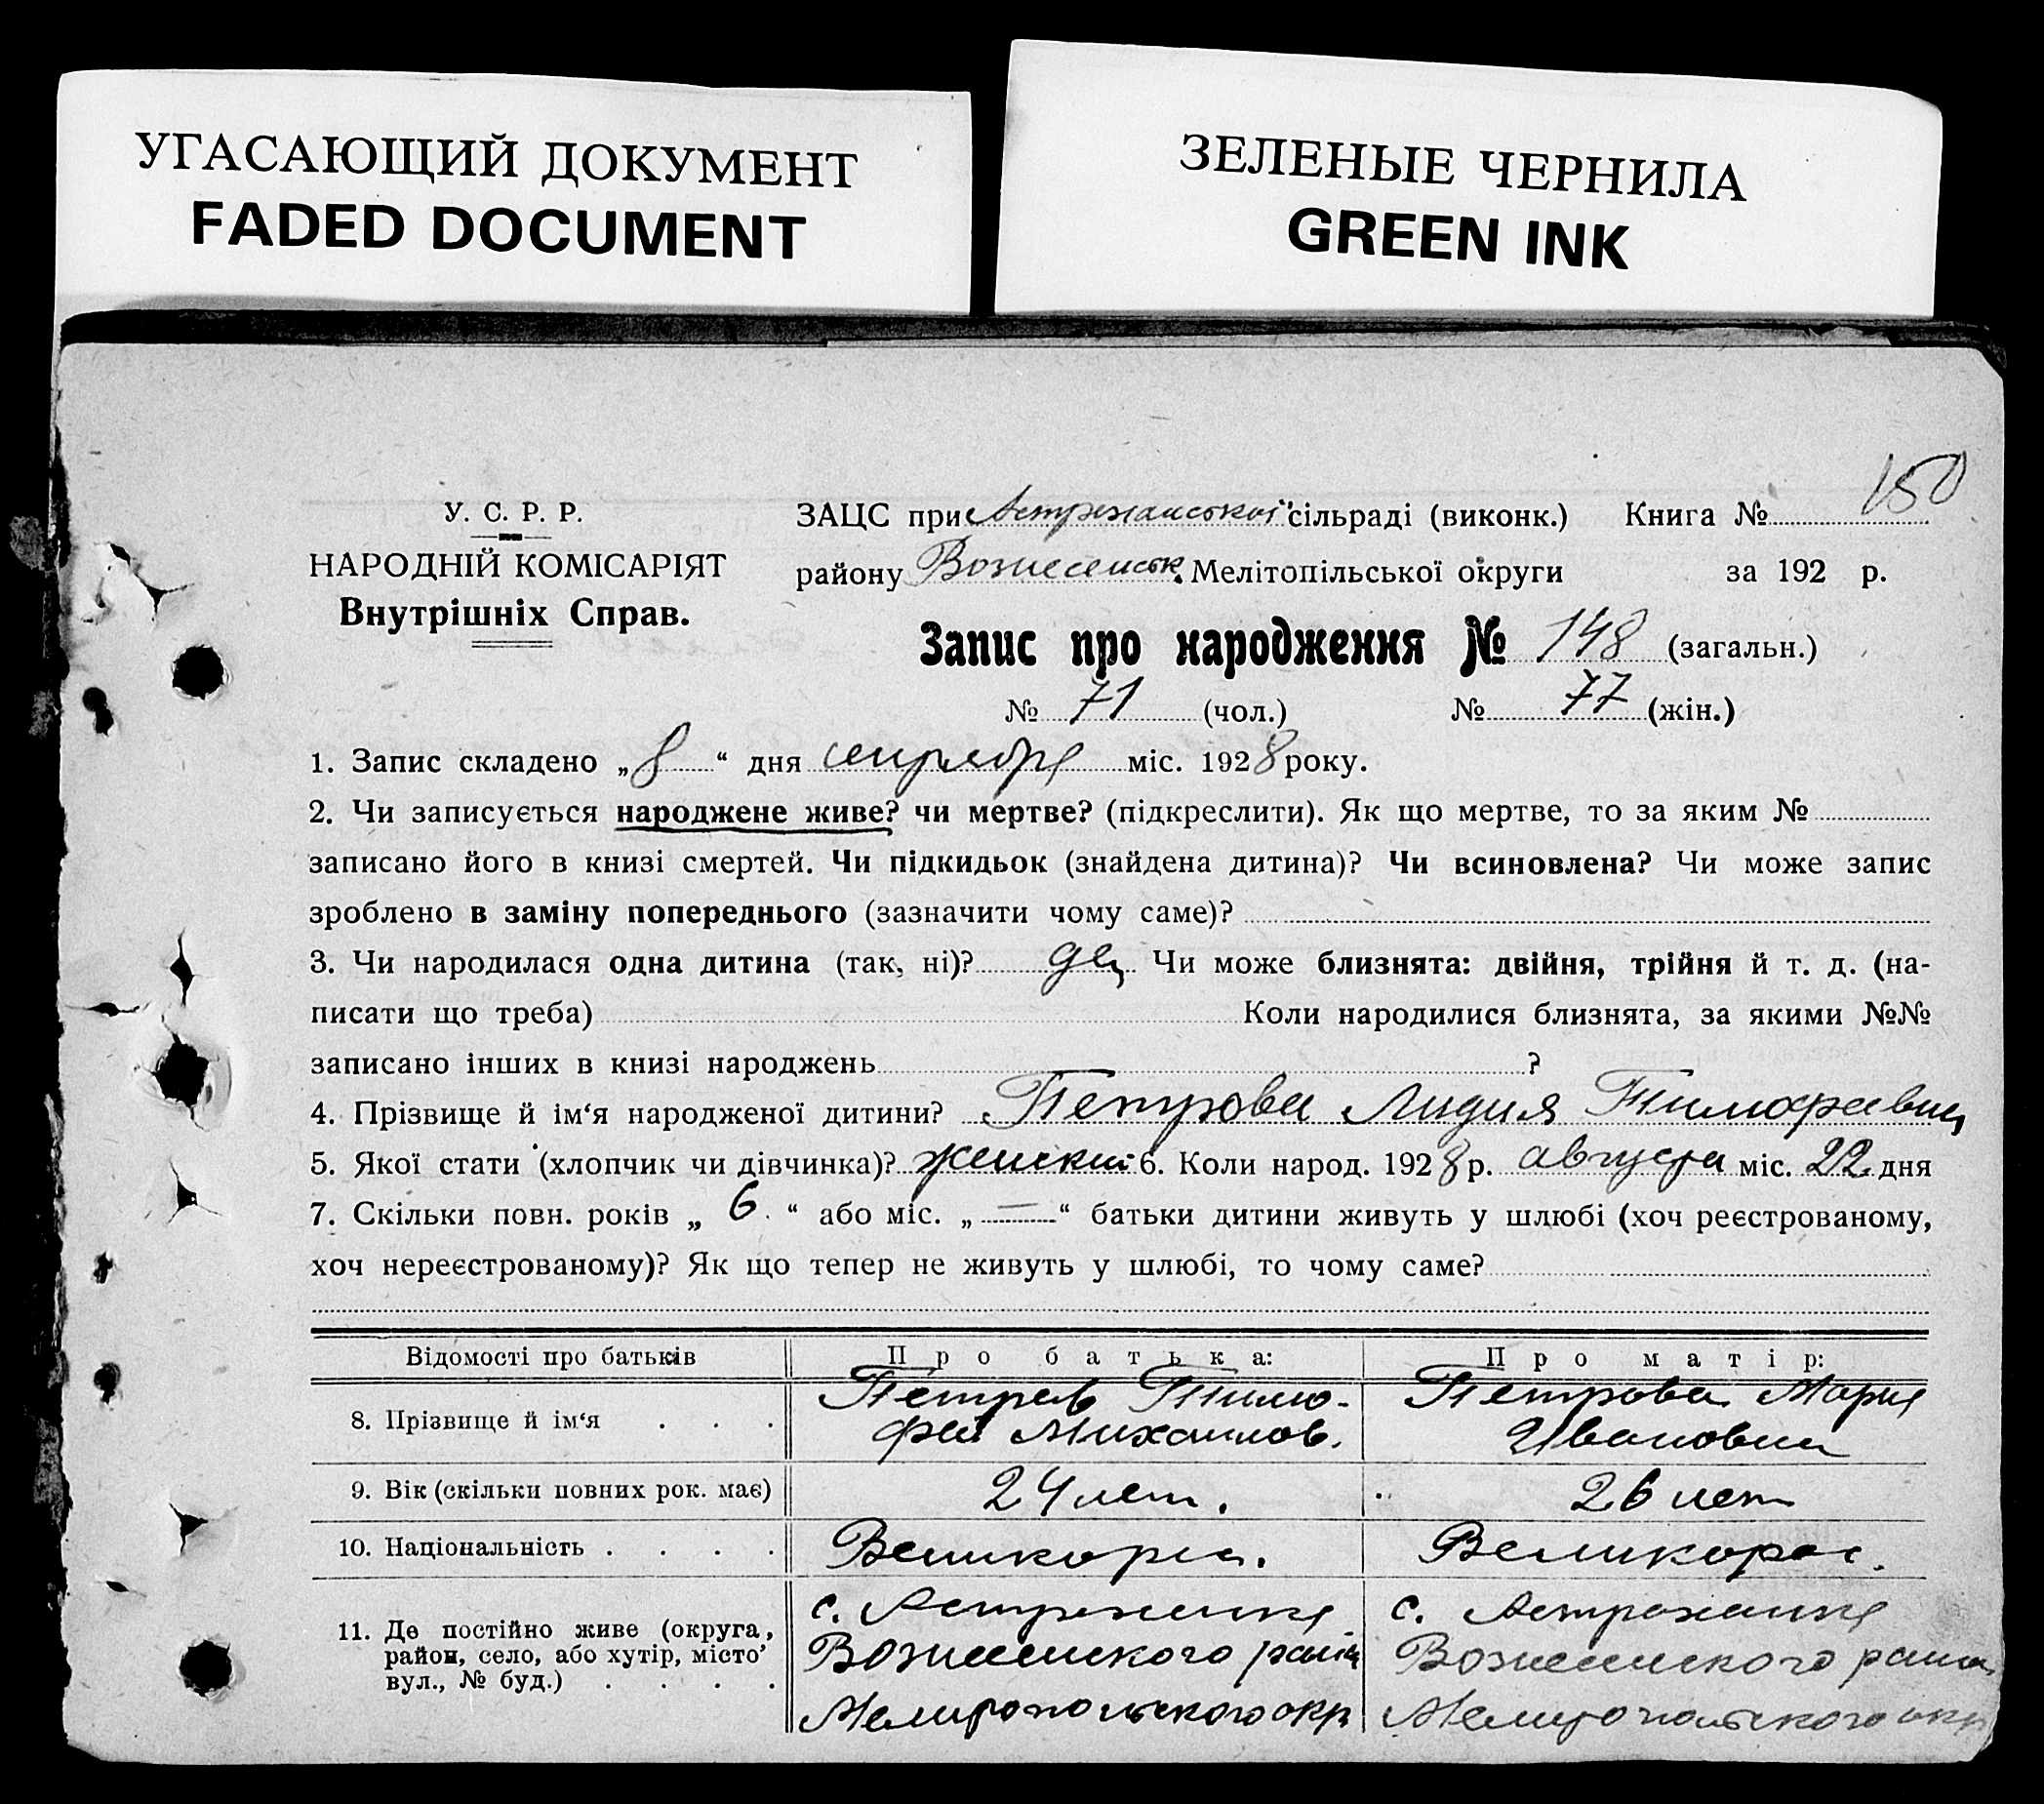 УГАСАЮЩИЙ ДОКУМЕНТ
FADED DOCUMENT
ЗЕЛЕНЫЕ ЧЕРНИЛА
GREEN INK
150
У. С. Р. Р.
НАРОДНІЙ КОМІСАРІЯТ
Внутрішніх Справ.
ЗАЦС при Астраханської сільраді (виконк.) Книга №
району Вознесенськ. Мелітопільської округи за 192 р.
Запис про народження № 148 (загальн.)
№ 71 (чол.) № 77 (жін.)
1. Запис складено „8“ дня сентября міс. 1928 року.
2. Чи записується народжене живе? чи мертве? (підкреслити). Як що мертве, то за яким №
записано його в книзі смертей. Чи підкидьок (знайдена дитина)? Чи всиновлена? Чи може запис
зроблено в заміну попереднього (зазначити чому саме)?
3. Чи народилася одна дитина (так, ні)? Чи може близнята: двійня, трійня й т. д. (на-
писати що треба) Коли народилися близнята, за якими №№
записано інших в книзі народжень ?
4. Прізвище й ім‘я народженої дитини? Петрова Лидия Тимофеевна
5. Якої стати (хлопчик чи дівчинка)? женский 6. Коли народ. 1928 р. августа міс. 22 дня
7. Скільки повн. років „ 6. “ або міс. „ — “ батьки дитини живуть у шлюбі (хоч реєстрованому,
хоч нереєстрованому)? Як що тепер не живуть у шлюбі, то чому саме?
Відомості про батьків Про батька: Про матір:
8. Прізвище й ім‘я . . . Петров Тимо- Петрова Мария
фей Михайлов. Ивановна
9. Вік (скільки повних рок. має) 24 лет. 26 лет
10. Національність . . . . Великорос. Великорос.
11. Де постійно живе (округа, с. Астраханка с. Астраханка
район, село, або хутір, місто’ Вознесенского района Вознесенского района
вул., № буд.) . . . . Мелитопольского окр Мелитопольского окр